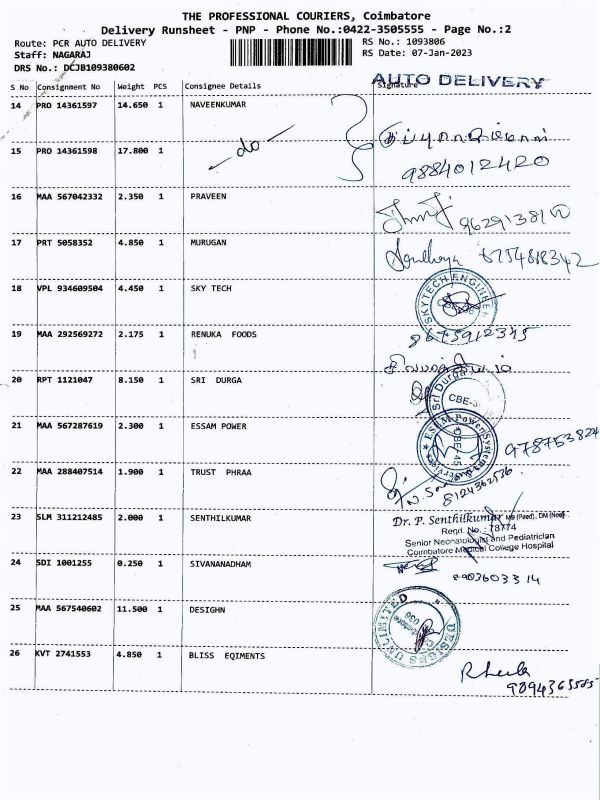 THE PROFESSIONAL COURIERS, Coimbatore
Delivery Runsheet - PNP - Phone No.:0422-3505555 - Page No.:2
Route: PCR AUTO DELIVERY
RS No.: 1093806
Staff: NAGARAJ
RS Date: 07-Jan-2023
DRS No.: DCJB109380602
AUTO DELIVERY
S No Consignment No Weight PCS Consignee Details Signature
14 PRO 14361597 14.650 1 NAVEENKUMAR
15 PRO 14361598 17.800 1 -do-
9884012420
16 MAA 567042332 2.350 1 PRAVEEN
17 PRT 5058352 4.850 1 MURUGAN
18 VPL 934609504 4.450 1 SKY TECH
SKYTECH ENGINEER
19 MAA 292569272 2.175 1 RENUKA FOODS
8675912345
20 RPT 1121047 8.150 1 SRI DURGA
Sri Durga
CBE-
21 MAA 567287619 2.300 1 ESSAM POWER
CBE-45
22 MAA 288407514 1.900 1 TRUST PHRAA
8124362536
23 SLM 311212485 2.000 1 SENTHILKUMAR
Dr. P. Senthilkumar MD (Paed)., DM (Neo)
Regd. No.: 78774
Senior Neonatologist and Pediatrician
Coimbatore Medical College Hospital
24 SDI 1001255 0.250 1 SIVANANADHAM
25 MAA 567540602 11.500 1 DESIGHN
DESIGNS UNLIMITED
26 KVT 2741553 4.850 1 BLISS EQIMENTS